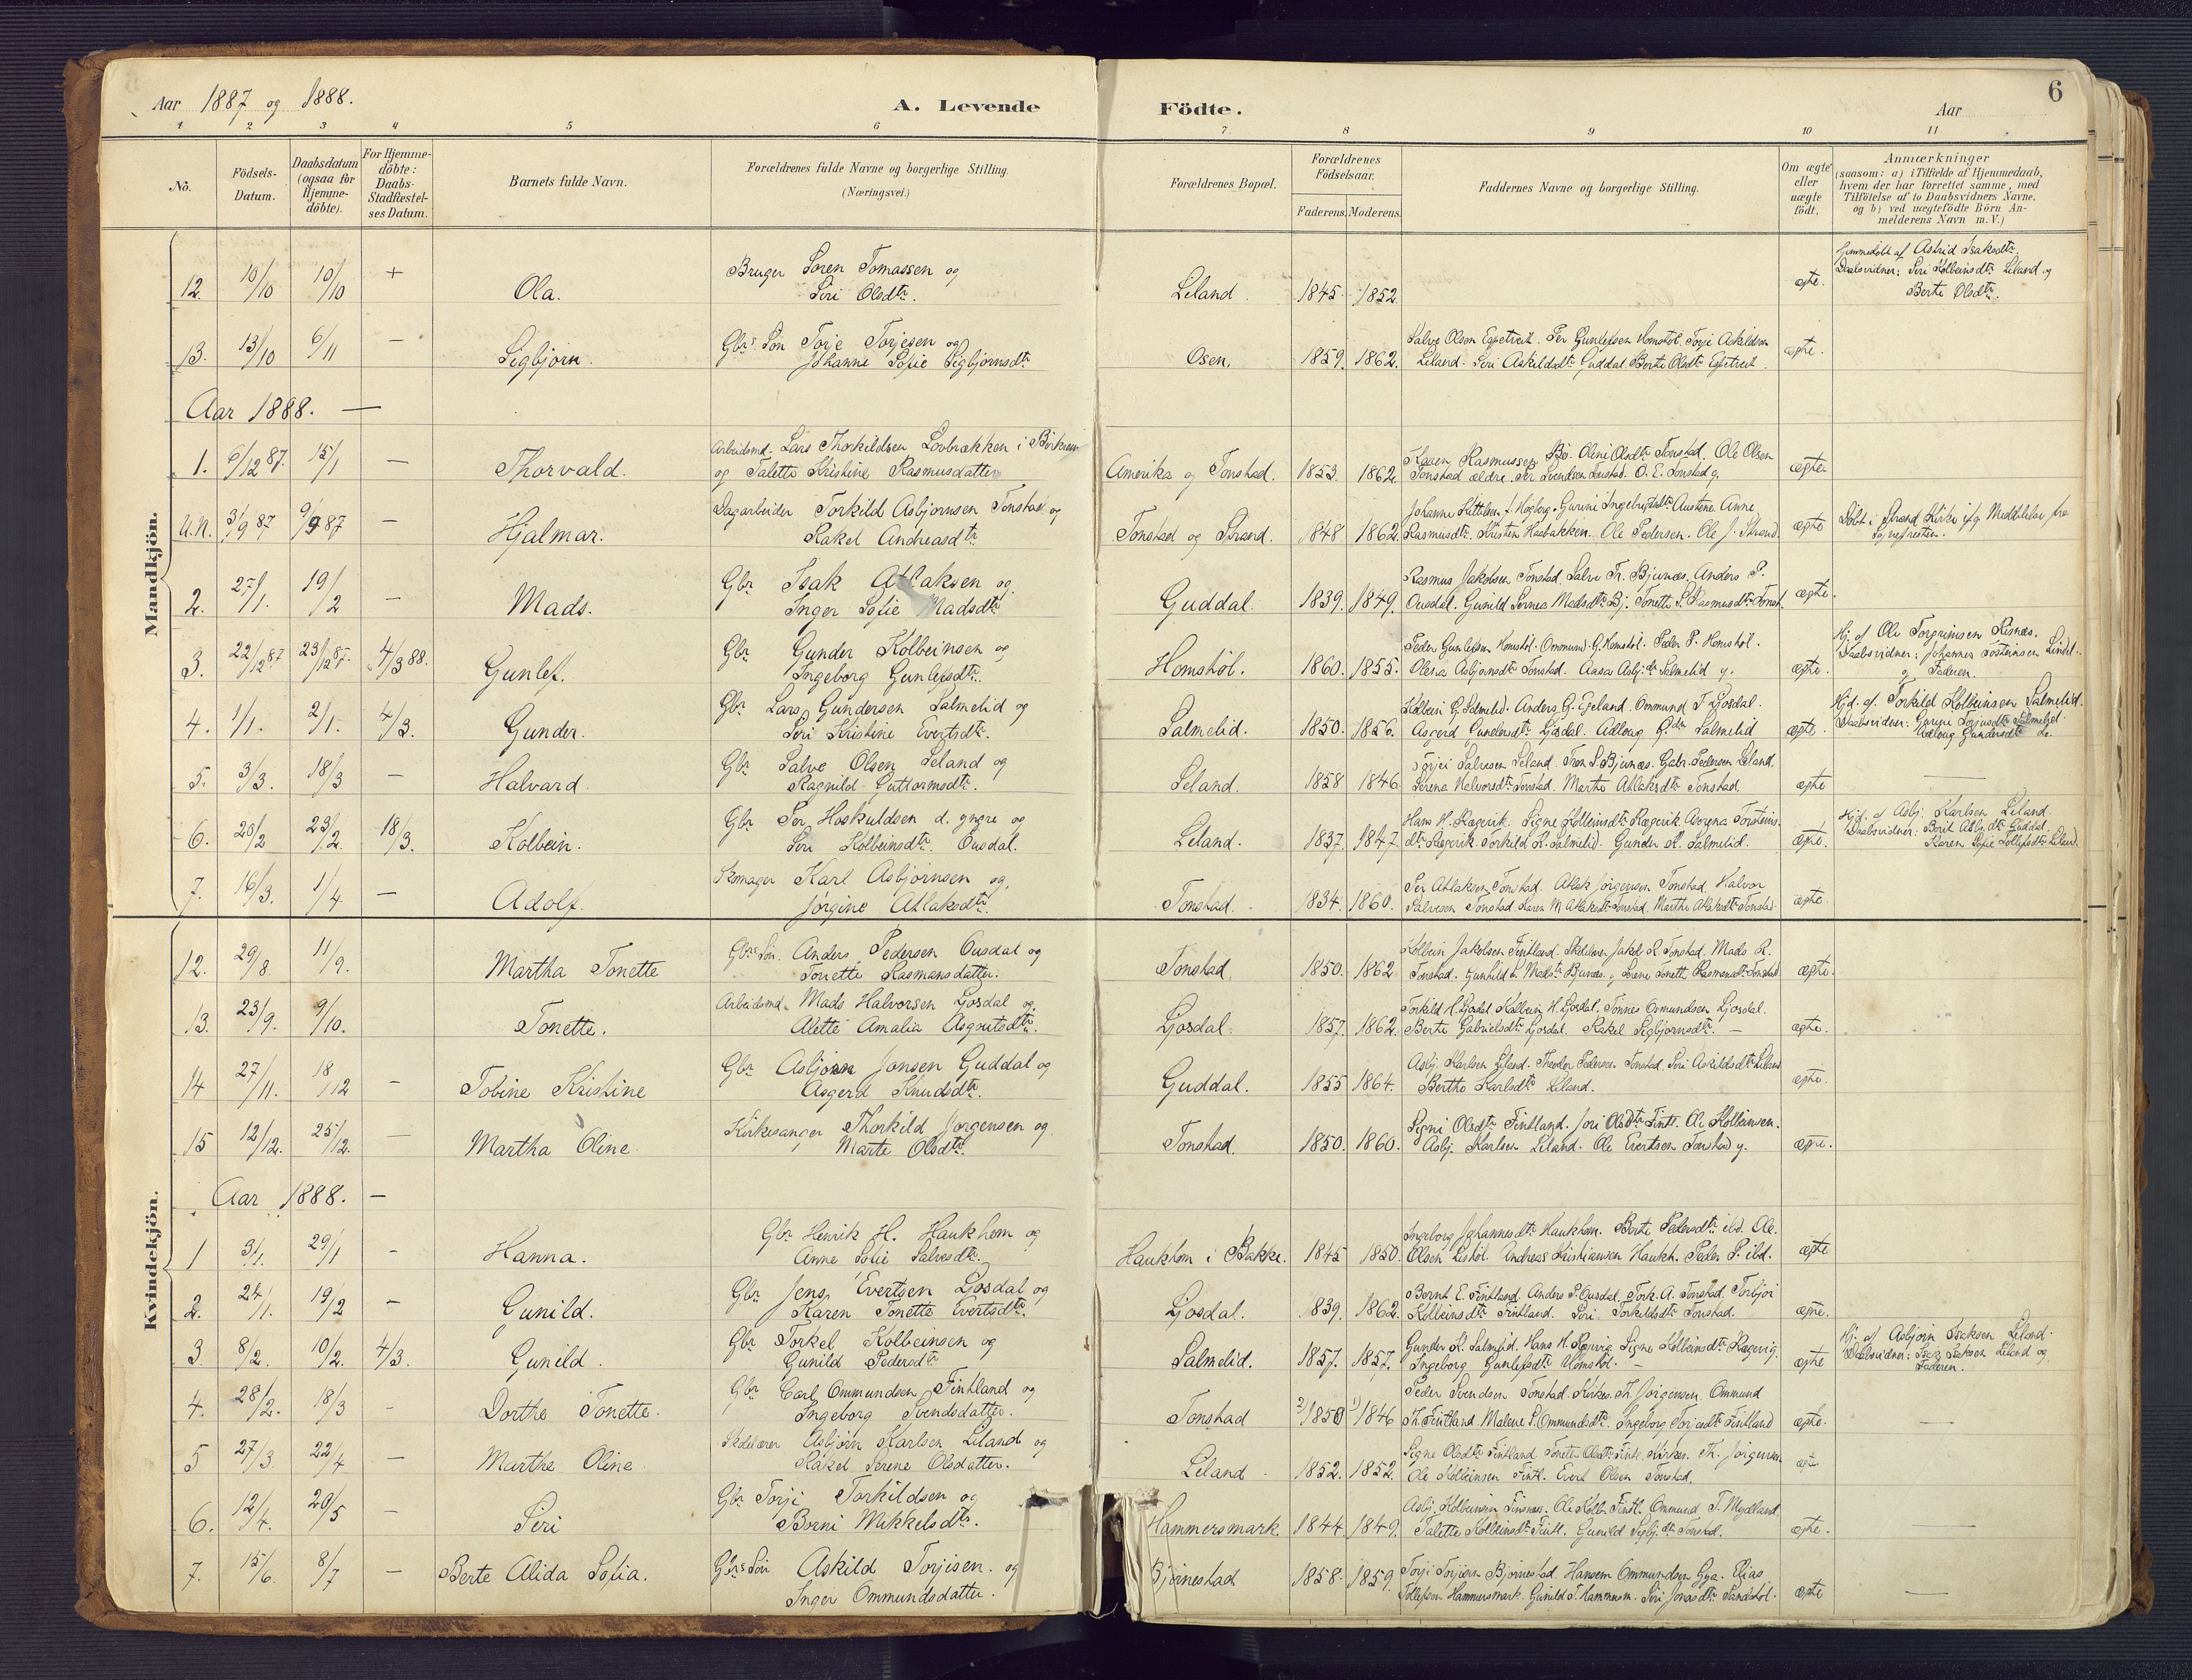 Aar 1887 og 1888.
A. Levende Födte.
Aar
6
1 2 3 4 5 6 7 8 9 10 11
No.
Födsels-Datum.
Daabsdatum (ogsaa for Hjemme-döbte).
For Hjemme-döbte: Daabs-Stadfæstel-ses Datum.
Barnets fulde Navn.
Forældrenes fulde Navne og borgerlige Stilling. (Næringsvei.)
Forældrenes Bopæl.
Forældrenes Födselsaar.
Faderens. Moderens.
Faddernes Navne og borgerlige Stilling.
Om ægte eller uægte födt.
Anmærkninger (saasom: a) i Tilfælde af Hjemmedaab, hvem der har forrettet samme, med Tilföielse af to Daabsvidners Navne. og b) ved uægtefödte Börn An-melderens Navn m. V.)
Mandkjön.
12. 10/10 10/10 + Ola. Bruger Sören Tomassen og
Siri Olsdtr. Liland. 1845. 1852. ægte. Hjemmedöbt af Astrid Isaksdtr.
Daabsvidner: Siri Kolbeinsdtr Liland og
Berte Olsdtr.
13. 13/10 6/11 - Sigbjörn. Gbrs Sön Torje Torjesen og
Johanne Sofie Sigbjörnsdtr Osen. 1859. 1862. Salve Olsen Egetveit. Per Gunlefsen Homshöl. Torje Askildsen
Liland. Siri Askildsdtr Guddal. Berte Olsdtr Egetveit. ægte.
Aar 1888. —
1. 6/12 87. 15/1 - Thorvald. Arbeidsmd. Lars Thorkildsen
og Talette Kristine Rasmusdatter Amerika og Tonstad. 1853. 1862. Rasmussen Bö. Oline Olsdtr Tonstad. Ole Olsen
Tonstad ældre. Per Svendsen Tonstad. O. E. Tonstad y. ægte.
U.N. 3/9 87 9/9 87 - Hjalmar. Dagarbeider Torkild Asbjörnsen Tonstad og
Rakel Andreasdtr Tonstad og Strand. 1848 1862.
Rasmusdtr. Kristen Hasbakken. Ole Pedersen. Ole J. Strand. ægte Döbt i Strand Kirke ifg. Meddelelse fra
Sognepresten.
2. 27/1. 19/2 - Mads. Gbr Isak Atlaksen og
Inger Sofie Madsdtr Guddal. 1839. 1849. Rasmus Jakobsen Tonstad. Salve Tr. Bjunes. Anders P.
Ousdal. Gunild Serine Madsdtr Bj. Tonette S. Rasmusdtr Tonst. ægte.
3. 22/12 87 23/12 87. 4/3 88. Gunlef. Gbr Gunder Kolbeinsen og
Ingeborg Gunlefsdtr. Homshöl. 1860. 1855. Peder Gunlefsen Homshöl. Ommund G. Homshöl. Peder P. Homshöl.
Olena Asbjörnsdtr Tonstad. Aasa Asbj.dtr Salmelid y. ægte. Hj. af Ole Torgrimsen Risnes.
Daabsvidner: Johannes Tosteinsen Lindel.
og Faderen.
4. 1/1. 2/1. 4/3. Gunder. Gbr Lars Gundersen Salmelid og
Siri Kristine Evertsdtr. Salmelid. 1850. 1856. Kolbein G. Salmelid. Anders G. Egeland. Ommund T Ljosdal.
Asgerd Gundersdtr Ljosdal. Adloug G.dtr Salmelid ægte. Hjd. af. Torkild Kolbeinsen Salmelid.
Adloug Gundersdtr
5. 3/3. 18/3 - Halvard. Gbr Salve Olsen Liland og
Ragnild Guttormsdtr. Liland. 1858 1846 Torjei Salvesen Liland. Tron S. Bjunes. Gabr. Pedersen Liland.
Serena Halvorsdtr Tonstad. Marthe Atlaksdtr Tonstad. ægte —
6. 20/2 23/2. 18/3. Kolbein. Gbr Per Hoskuldsen d. yngre og
Siri Kolbeinsdtr. Ousdal. Liland. 1837. 1847. Hans H. Rægevik. Signe Kolbeinsdtr Rægevik
Rægevik. Torkild K. Salmelid. Gunder K. Salmelid. ægte. Hjd. af Asbj. Karlsen Liland.
Daabsvidner: Berit Asbj.dtr Guddal.
Karen Sofie Tollefsdtr Liland.
7. 16/3. 1/4 - Adolf. Skomager Karl Asbjörnsen og
Jörgine Atlaksdtr. Tonstad. 1834. 1860. Per Atlaksen Tonstad. Atlak Jörgensen Tonstad. Halvor
Salvesen Tonstad. Karen M. Atlaksdtr Tonstad. Marthe Atlaksdtr Tonstad ægte.
Kvindekjön.
12. 29/8. 11/9. Martha Tonette Gbrs Sön. Anders Pedersen Ousdal og
Tonette Rasmusdatter. Tonstad. 1850. 1862 Kolbein Jakobsen Fintland. Jakob R. Tonstad. Mads R.
Tonstad. Gunhild Madsdtr Bjunes. Serine Tonett Rasmusdtr Tonstad. ægte.
13. 23/9. 9/10. Tonette. Arbeidsmd. Mads Halvorsen Ljosdal og
Alette Amalia Asgautsdtr. Ljosdal. 1857. 1862. Torkild H. Ljosdal. Kolbein H. Ljosdal. Tönnes Ommundsen Ljosdal.
Berte Gabrielsdtr Ljosdal. Rakel Sigbjörnsdtr. — ægte.
14 27/11. 18/12 - Tobine Kristine Gbr Asbjörn Jonsen Guddal og
Asgerd Knudsdtr. Guddal. 1855 1864. Asbj. Karlsen Liland. Theodor Pedersen Tonstad. Siri Askildsdtr Liland
Berthe Karlsdtr Liland. ægte.
15 12/12. 25/12. - Martha Oline Kirkesanger Thorkild Jörgensen og
Marte Olsdtr. Tonstad. 1850. 1860. Signi Olsdtr Fintland. Jori Olsdtr Fintl. Ole Kolbeinsen.
Asbj. Karlsen Liland. Ole Evertsen Tonstad y. ægte.
Aar 1888. —
1 3/1. 29/1 - Hanna. Gbr Henrik H. Haukhom og
Anne Sofie Salvesdtr. Haukhom i Bakke. 1845 1850. Ingeborg Johannesdtr Haukhom. Berte Pedersdtr ibd. Ole
Olsen Andreas Kristiansen Haukh. Peder P. ibd. ægte
2. 24/1. 19/2 - Gunild. Gbr Jens Evertsen Ljosdal og
Karen Tonette Evertsdtr. Ljosdal. 1839. 1862. Bernt E. Fintland. Anders P. Ousdal. Tork. A. Tonstad. Torbjör
Kolbeinsdtr Fintland. Siri Torkildsdtr Tonstad. ægte.
3 8/2. 10/2. 4/3. Gunild. Gbr Torkel Kolbeinsen og
Gunild Pedersdtr Salmelid. 1857. 1857. Gunder K. Salmelid. Hans H. Rægevig. Signe Kolbeinsdtr Rægevig.
Ingeborg Gunlefsdtr Homshöl. — ægte Hj. af Asbjörn Isaksen Liland.
Daabsvidner: Isak Isaksen Liland og
Faderen.
4. 28/2. 18/3 - Dorthe Tonette. Gbr Carl Ommundsen Fintland og
Ingeborg Svendsdatter. Tonstad 2) 1850 1) 1846 Peder Svendsen Tonstad. Kirkes. Th. Jörgensen. Ommund
Th. Fintland. Malene S. Ommundsdtr. Ingeborg Torjusdtr Fintland ægte. —
5 27/3. 22/4 - Marthe Oline. Skolelærer Asbjörn Karlsen Liland og
Rakel Serene Olsdatter. Liland. 1852. 1852. Signe Olsdtr Fintland. Tonette Olsdtr Fintl. Kirkes. Th. Jörgensen
Ole Kolbeinsen Fintl. Evert Olsen Tonstad. ægte —
6. 12/4. 20/5 - Siri Gbr Torji Torkildsen og
Borni Mikkelsdtr. Hammersmark. 1844. 1849. Asbj. Kolbeinsen Finsnes. Ole Kolb. Fintl. Ommund T. Mydland
Talette Kolbeinsdtr Fintl. Gunild Sigbj.dtr Tonstad. ægte. —
7. 15/6. 8/7 - Berte Alida Sofia. Gbrs Sön Askild Torjisen. og
Inger Ommundsdatter. Björnestad 1858. 1859. Torji Torjisen Björnestad. Hansem Ommundsen Gya. Elias
Tollefsen Hammersmark. Gunild T. Hammersm. Siri Jonasdtr Sandshöl. ægte —